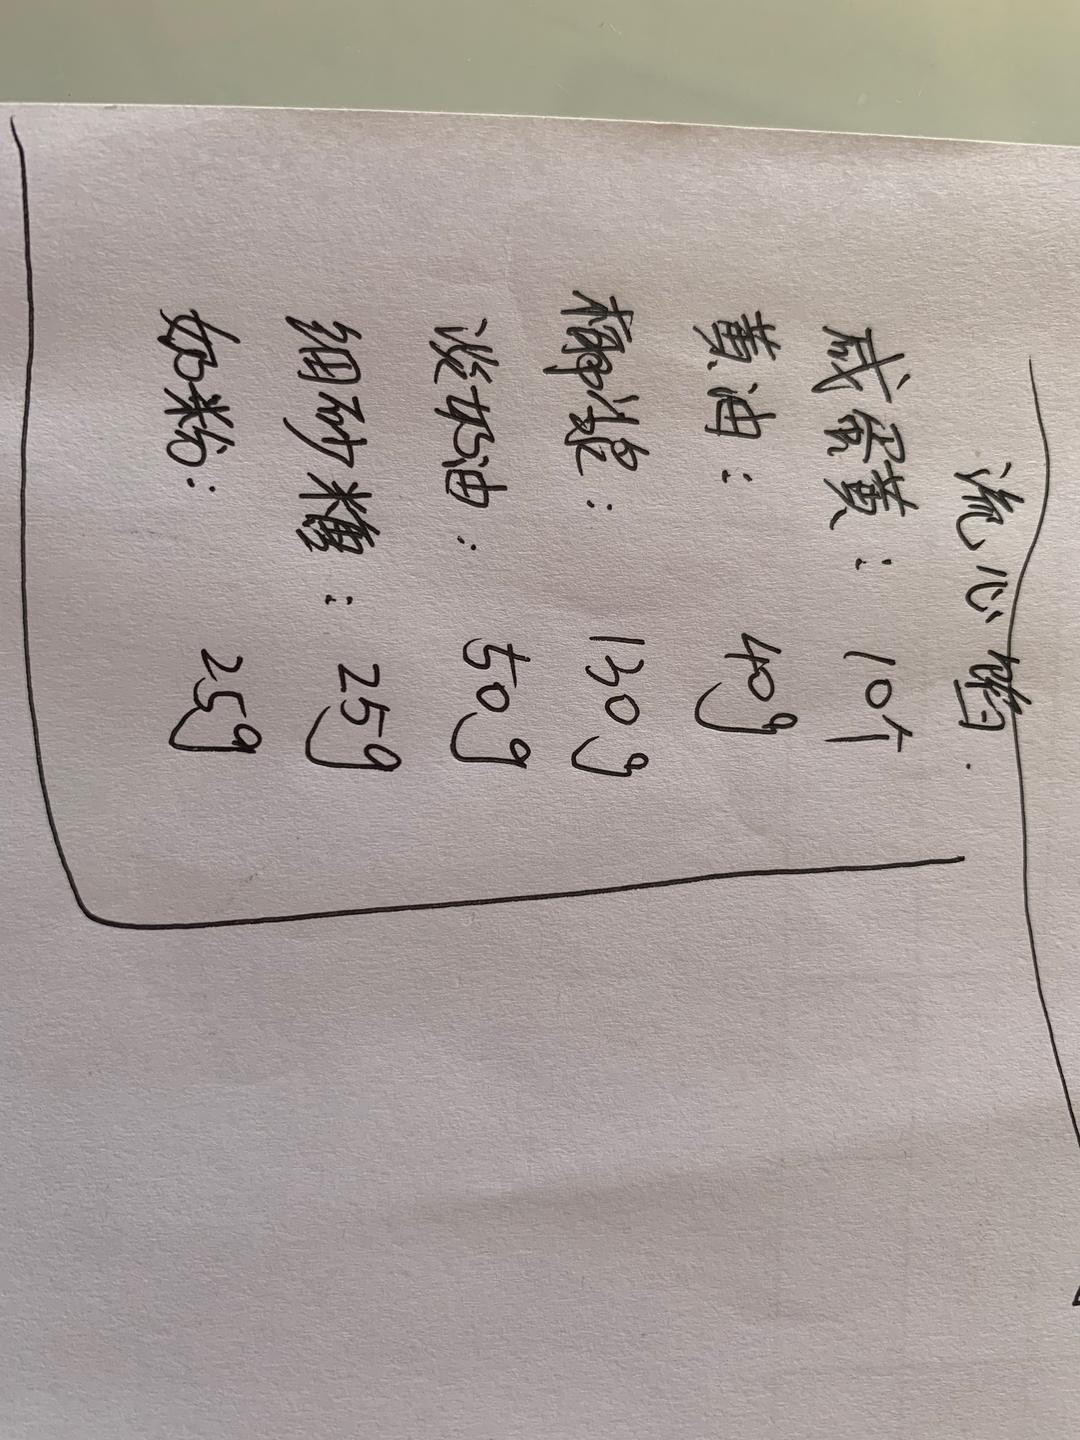 流心馅.
咸蛋黄: 10个
黄油: 40g
椰浆: 130g
淡奶油: 50g
细砂糖: 25g
奶粉: 25g